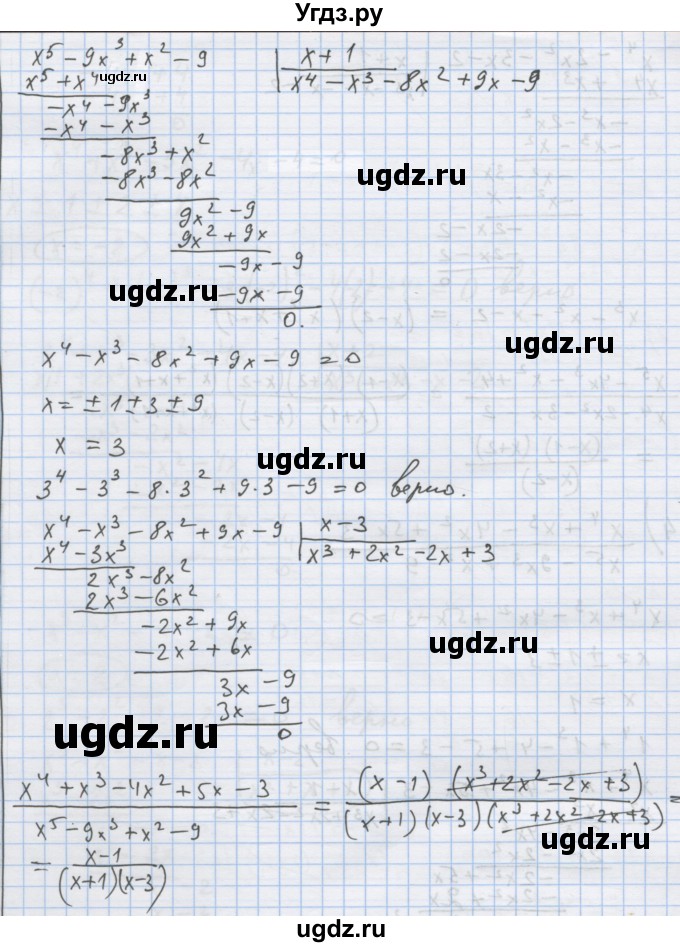 Угдз.ру
x⁵ - 9x³ + x² - 9 | x + 1
x⁵ + x⁴ | x⁴ - x³ - 8x² + 9x - 9
ugdz.ru
-x⁴ - 9x³
-x⁴ - x³
-8x³ + x²
-8x³ - 8x²
ugdz.ru
9x² - 9
9x² + 9x
-9x - 9
ugdz.ru
-9x - 9
0.
ugdz.ru
x⁴ - x³ - 8x² + 9x - 9 = 0
x = ± 1 ± 3 ± 9
x = 3
ugdz.ru
3⁴ - 3³ - 8·3² + 9·3 - 9 = 0 верно.
x⁴ - x³ - 8x² + 9x - 9 | x - 3
x⁴ - 3x³ | x³ + 2x² - 2x + 3
2x³ - 8x²
2x³ - 6x²
-2x² + 9x
-2x² + 6x
ugdz.ru
3x - 9
3x - 9
0
ugdz.ru
x⁴ + x³ - 4x² + 5x - 3 = (x - 1) (x³ + 2x² - 2x + 3) =
x⁵ - 9x³ + x² - 9 (x + 1) (x - 3) (x³ + 2x² - 2x + 3)
ugdz.ru
= x - 1
(x + 1)(x - 3)
ugdz.ru